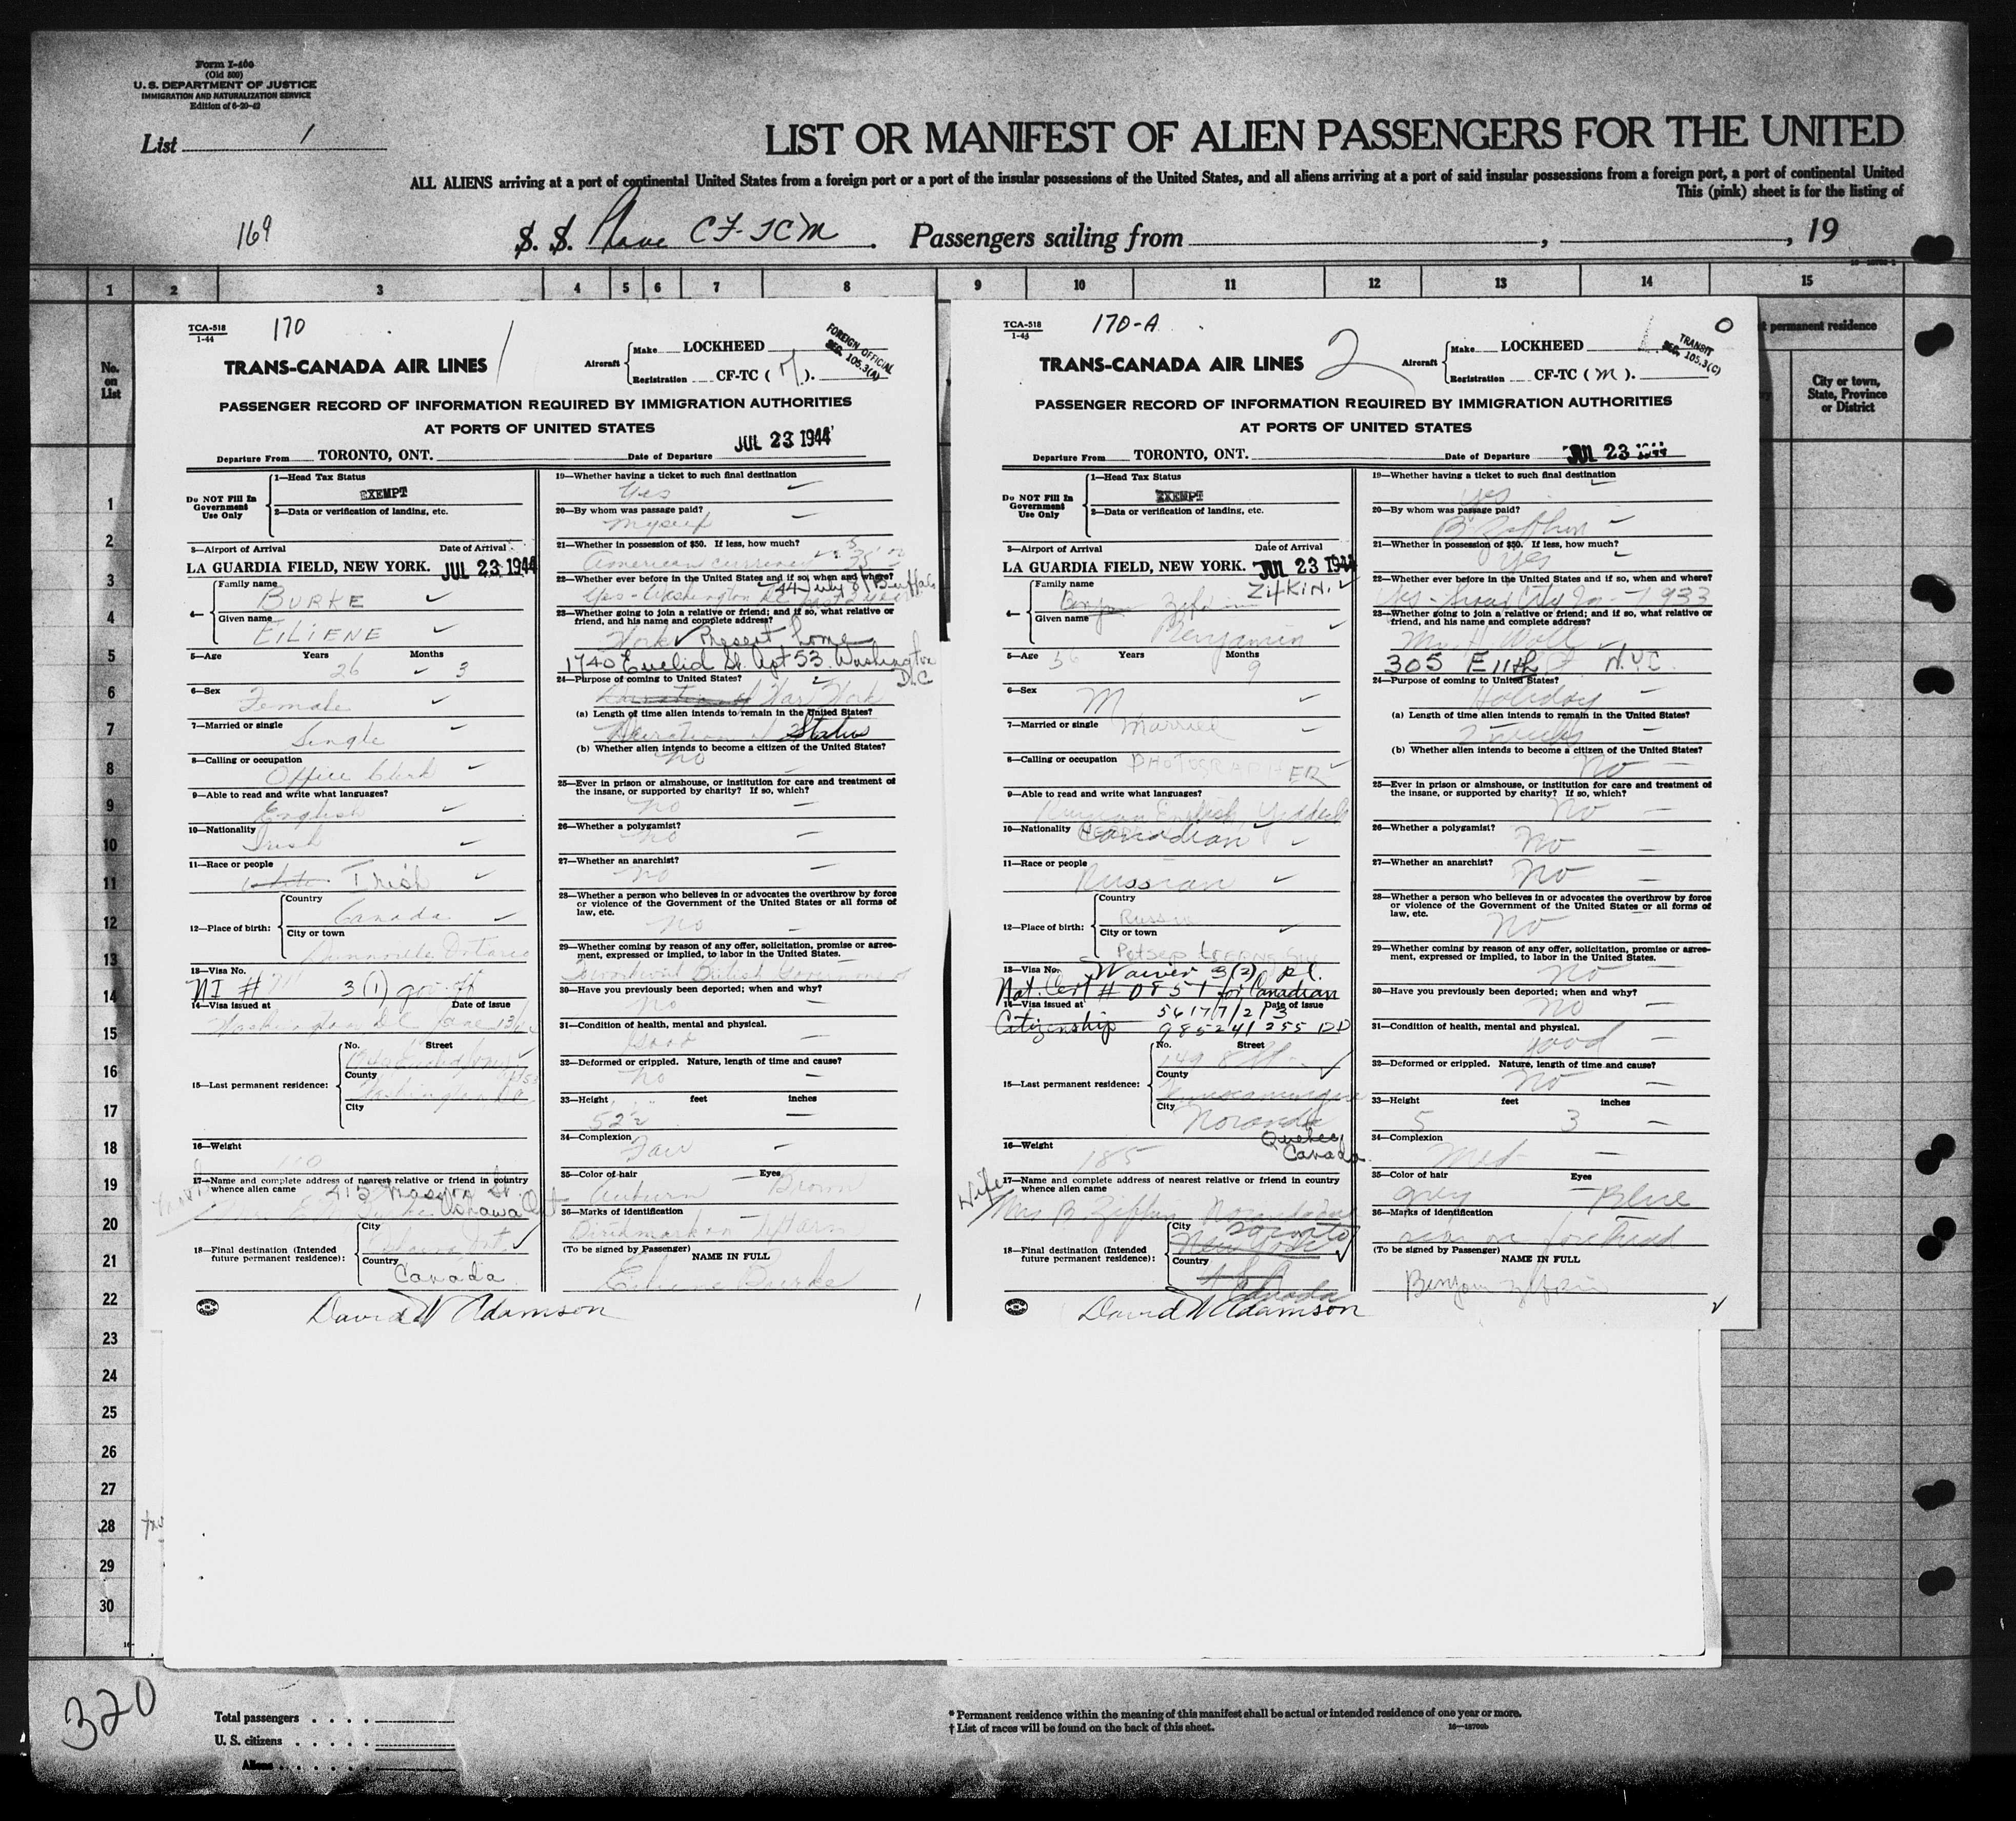 Form I-466
(Old 500)
U. S. DEPARTMENT OF JUSTICE
IMMIGRATION AND NATURALIZATION SERVICE
Edition of 6-20-42
List 1
LIST OR MANIFEST OF ALIEN PASSENGERS FOR THE UNITED
ALL ALIENS arriving at a port of continental United States from a foreign port or a port of the insular possessions of the United States, and all aliens arriving at a port of said insular possessions from a foreign port, a port of continental United
This (pink) sheet is for the listing of
169
S. S. Plane CF-TCM . Passengers sailing from , , 19
1 2 3 4 5 6 7 8 9 10 11 12 13 14 15
No. on List
permanent residence
City or town, State, Province or District
TCA-518
1-44
170
1
TRANS-CANADA AIR LINES
Aircraft
Make LOCKHEED
Registration CF-TC ( M ).
FOREIGN OFFICIAL
SEC. 105.3(A)
PASSENGER RECORD OF INFORMATION REQUIRED BY IMMIGRATION AUTHORITIES
AT PORTS OF UNITED STATES
Departure From TORONTO, ONT. Date of Departure JUL 23 1944
Do NOT Fill In Government Use Only
1—Head Tax Status
EXEMPT
2—Data or verification of landing, etc.
3—Airport of Arrival Date of Arrival
LA GUARDIA FIELD, NEW YORK. JUL 23 1944
4—
Family name
BURKE
Given name
EILIENE
5—Age Years Months
26 3
6—Sex
Female
7—Married or single
Single
8—Calling or occupation
Office Clerk
9—Able to read and write what languages?
English
10—Nationality
Irish
11—Race or people
white Irish
12—Place of birth:
Country
Canada
City or town
Dunnville Ontario
13—Visa No.
NI # 3(1) gov. off
14—Visa issued at Date of issue
Washington D.C. June 13
15—Last permanent residence:
No. Street
County
Washington
City
16—Weight
110
17—Name and complete address of nearest relative or friend in country
whence alien came
413 Masson St.
Oshawa Ont
18—Final destination (Intended
future permanent residence):
City
Country
Canada
David W Adamson
19—Whether having a ticket to such final destination
Yes
20—By whom was passage paid?
Myself
21—Whether in possession of $50. If less, how much?
American
22—Whether ever before in the United States and if so, when and where?
44 July 8 Buffalo
Yes - Washington DC
23—Whether going to join a relative or friend; and if so, what relative or
friend, and his name and complete address?
Work Present home
1740 Euclid St. Apt 53. Washington
D.C
24—Purpose of coming to United States?
War Work
(a) Length of time alien intends to remain in the United States?
Duration of Status
(b) Whether alien intends to become a citizen of the United States?
No
25—Ever in prison or almshouse, or institution for care and treatment of
the insane, or supported by charity? If so, which?
No
26—Whether a polygamist?
No
27—Whether an anarchist?
No
28—Whether a person who believes in or advocates the overthrow by force
or violence of the Government of the United States or all forms of
law, etc.
No
29—Whether coming by reason of any offer, solicitation, promise or agree-
ment, expressed or implied, to labor in the United States.
British Government
30—Have you previously been deported; when and why?
No
31—Condition of health, mental and physical.
Good
32—Deformed or crippled. Nature, length of time and cause?
No
33—Height feet inches
5 2½
34—Complexion
Fair
35—Color of hair Eyes
Auburn Brown
36—Marks of identification
Birthmark on
(To be signed by Passenger) NAME IN FULL
Eiliene Burke
TCA-518
1-44
170-A
2
TRANS-CANADA AIR LINES
Aircraft
Make LOCKHEED
Registration CF-TC ( M ).
TRANSIT
SEC. 105.3(C)
PASSENGER RECORD OF INFORMATION REQUIRED BY IMMIGRATION AUTHORITIES
AT PORTS OF UNITED STATES
Departure From TORONTO, ONT. Date of Departure JUL 23 1944
Do NOT Fill In Government Use Only
1—Head Tax Status
EXEMPT
2—Data or verification of landing, etc.
3—Airport of Arrival Date of Arrival
LA GUARDIA FIELD, NEW YORK. JUL 23 1944
4—
Family name
ZifKiN.
Given name
Benjamin
5—Age Years Months
56 9
6—Sex
M
7—Married or single
Married
8—Calling or occupation
PHOTOGRAPHER
9—Able to read and write what languages?
Russian English Yiddish
10—Nationality
Canadian
11—Race or people
Russian
12—Place of birth:
Country
Russia
City or town
13—Visa No.
Waiver 3(2) pl.
Nat. Cert # 0851 for Canadian
14—Visa issued at Date of issue
Citizenship
15—Last permanent residence:
No. Street
149 8 St.
County
City
Noranda
Quebec,
Canada
16—Weight
185
17—Name and complete address of nearest relative or friend in country
whence alien came
Wife
Mrs B. Zifkin
18—Final destination (Intended
future permanent residence):
City
Toronto
New York
Country
Canada
David W Adamson
19—Whether having a ticket to such final destination
yes
20—By whom was passage paid?
B. Zifkin
21—Whether in possession of $50. If less, how much?
Yes
22—Whether ever before in the United States and if so, when and where?
Yes - Sioux City Ia - 1933
23—Whether going to join a relative or friend; and if so, what relative or
friend, and his name and complete address?
305 E 11th N.Y.C.
24—Purpose of coming to United States?
Holiday
(a) Length of time alien intends to remain in the United States?
2 weeks
(b) Whether alien intends to become a citizen of the United States?
No
25—Ever in prison or almshouse, or institution for care and treatment of
the insane, or supported by charity? If so, which?
No
26—Whether a polygamist?
No
27—Whether an anarchist?
No
28—Whether a person who believes in or advocates the overthrow by force
or violence of the Government of the United States or all forms of
law, etc.
No
29—Whether coming by reason of any offer, solicitation, promise or agree-
ment, expressed or implied, to labor in the United States.
No
30—Have you previously been deported; when and why?
No
31—Condition of health, mental and physical.
good
32—Deformed or crippled. Nature, length of time and cause?
No
33—Height feet inches
5 3
34—Complexion
Med
35—Color of hair Eyes
grey Blue
36—Marks of identification
scar on forehead
(To be signed by Passenger) NAME IN FULL
Benjamin Zifkin
1
2
3
4
5
6
7
8
9
10
11
12
13
14
15
16
17
18
19
20
21
22
23
24
25
26
27
28
29
30
320
Total passengers . . . .
U. S. citizens . . . . .
Aliens . . . . . .
* Permanent residence within the meaning of this manifest shall be actual or intended residence of one year or more.
† List of races will be found on the back of this sheet.